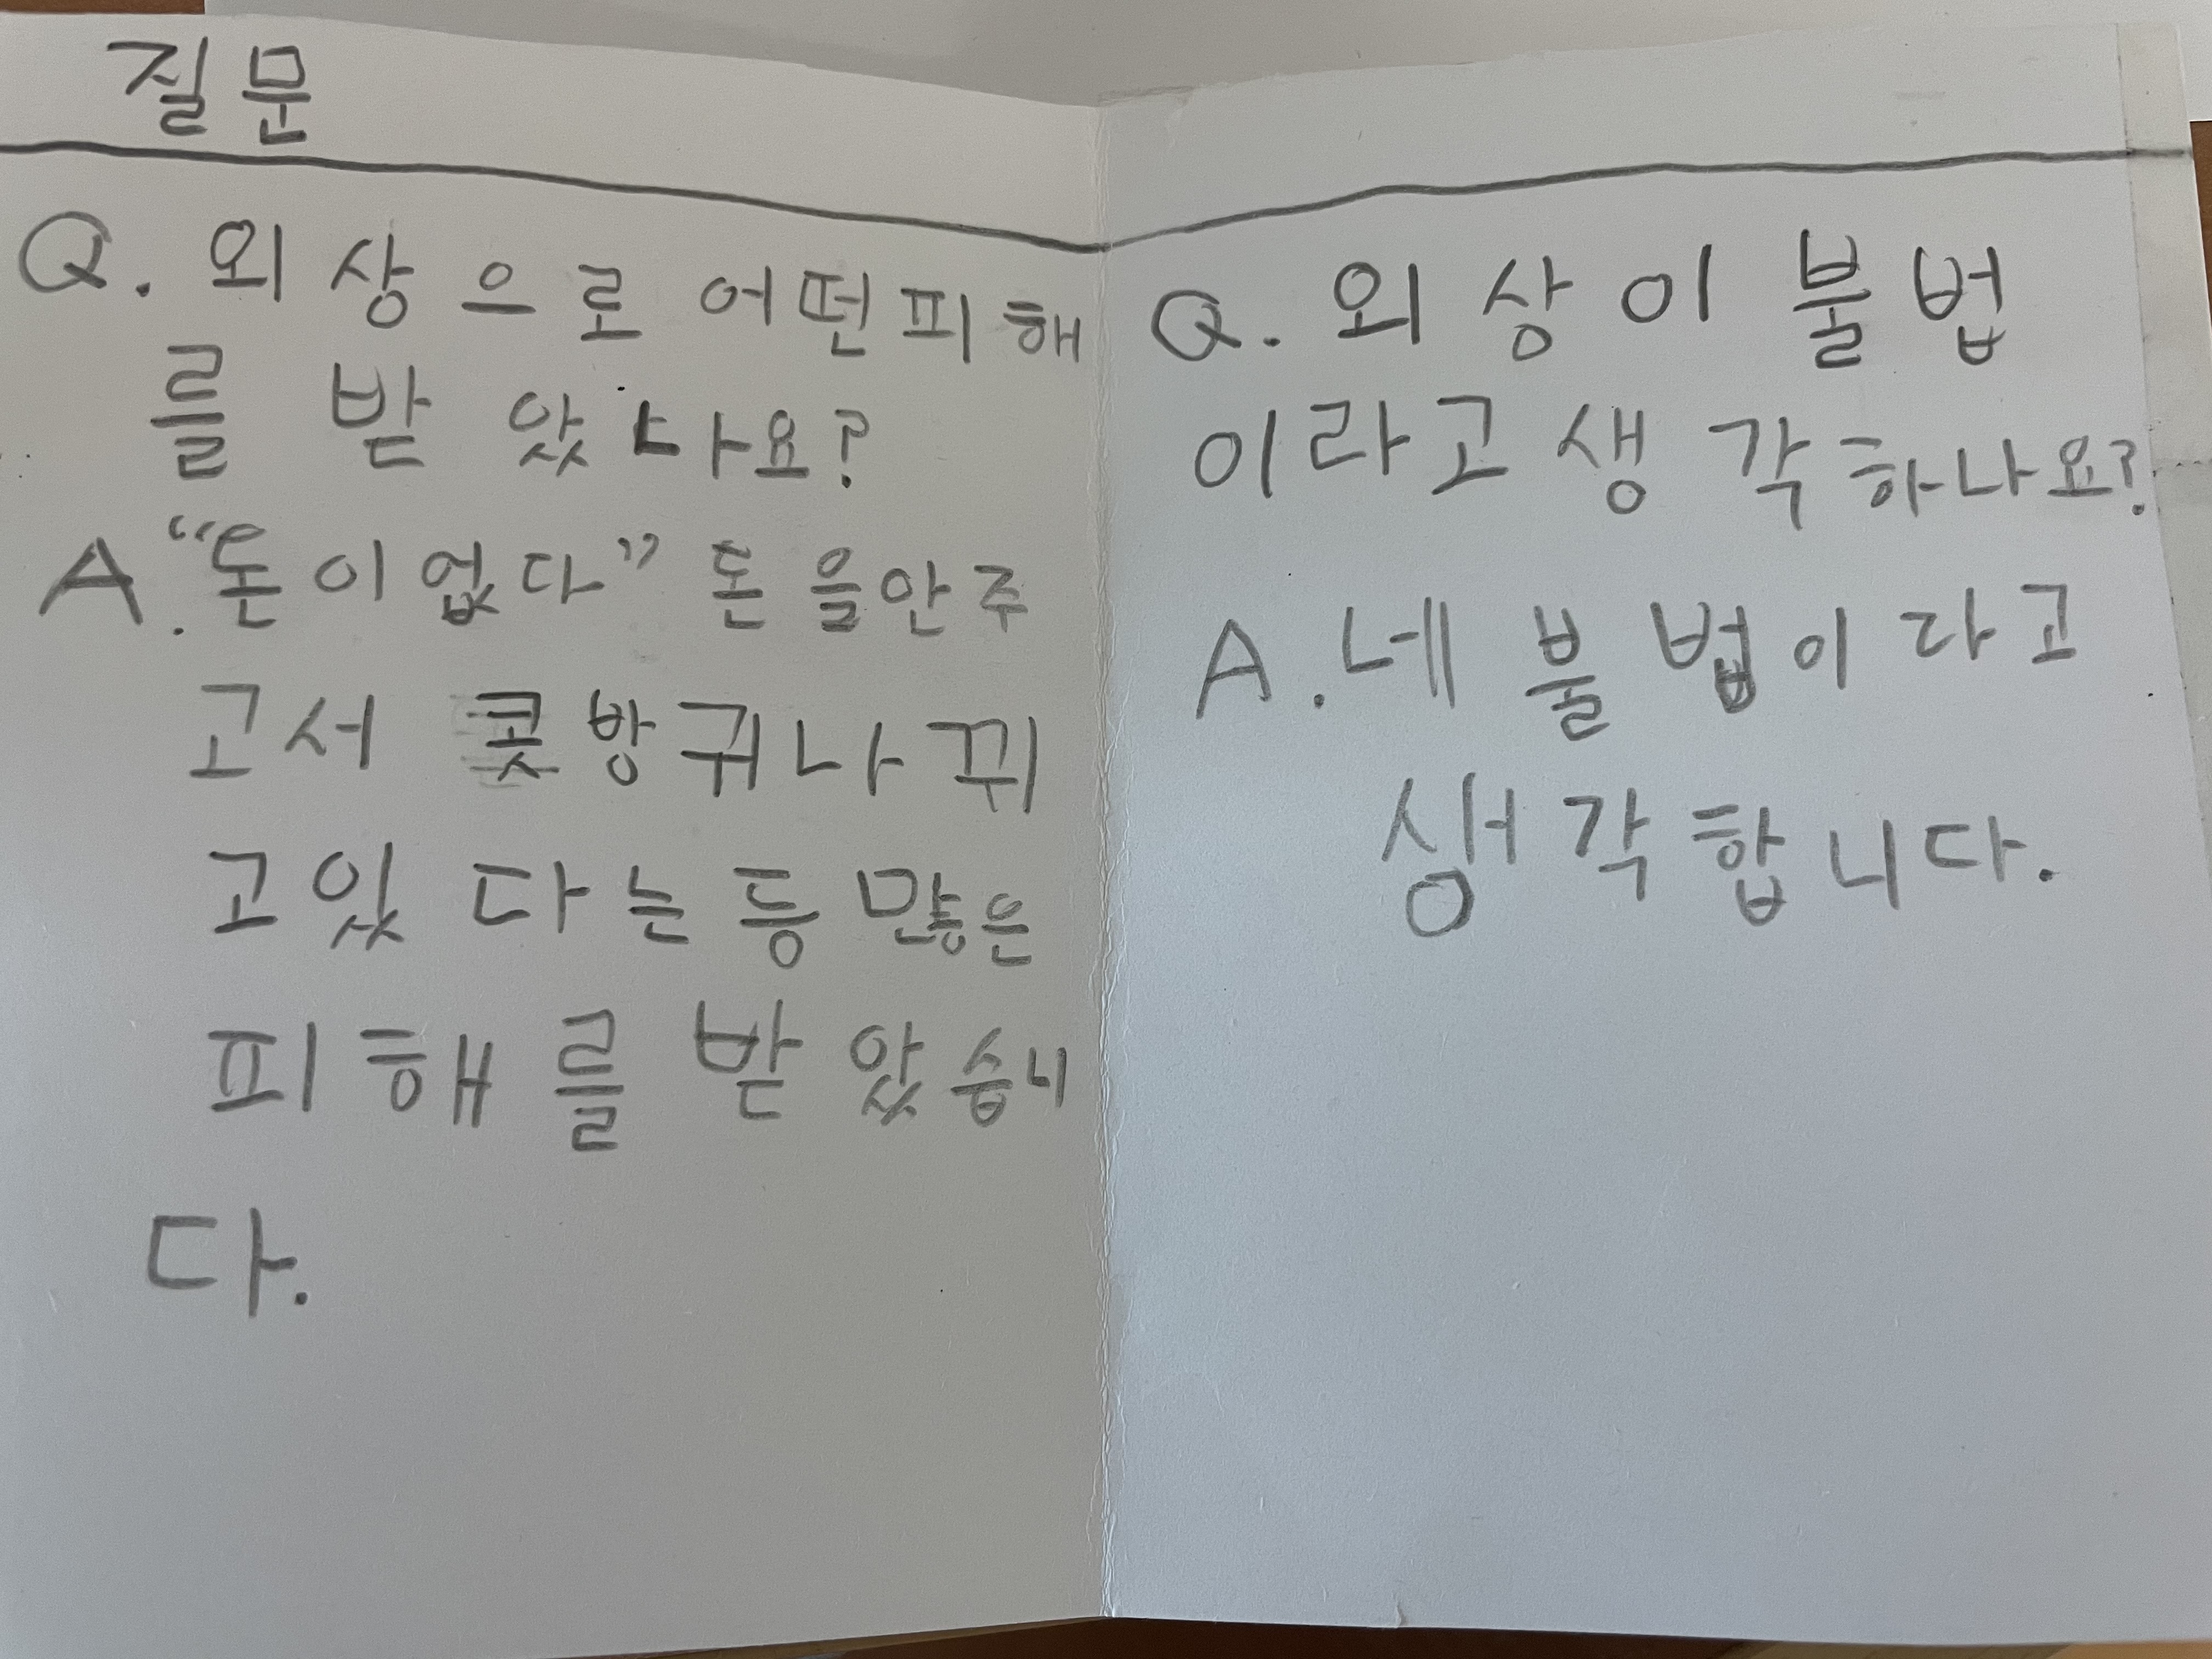 질문
Q. 외상으로 어떤피해
를 받았나요?
A. "돈이없다" 돈을안주
고서 콧방귀나 뀌
고있다는등 많은
피해를 받았습니
다.
Q. 외상이 불법
이라고 생각하나요?
A. 네 불법이라고
생각합니다.